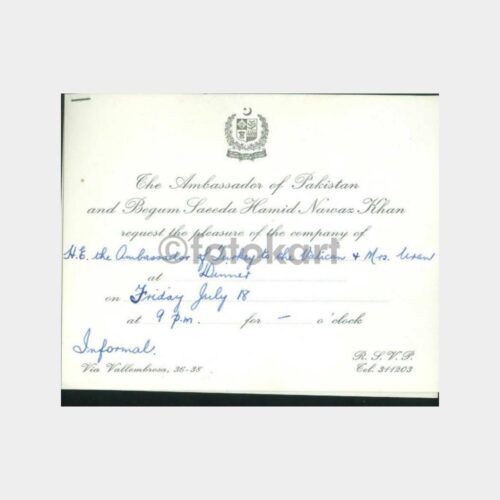 The Ambassador of Pakistan
and Begum Saeeda Hamid Nawaz Khan
request the pleasure of the company of
H.E. the Ambassador of Turkey to the Vatican & Mrs. Uran
at Dinner
on Friday July 18
at 9 p.m. for – o'clock
Informal.
R. S. V. P.
Via Vallombrosa, 36-38
Tel. 311203
©fotokart